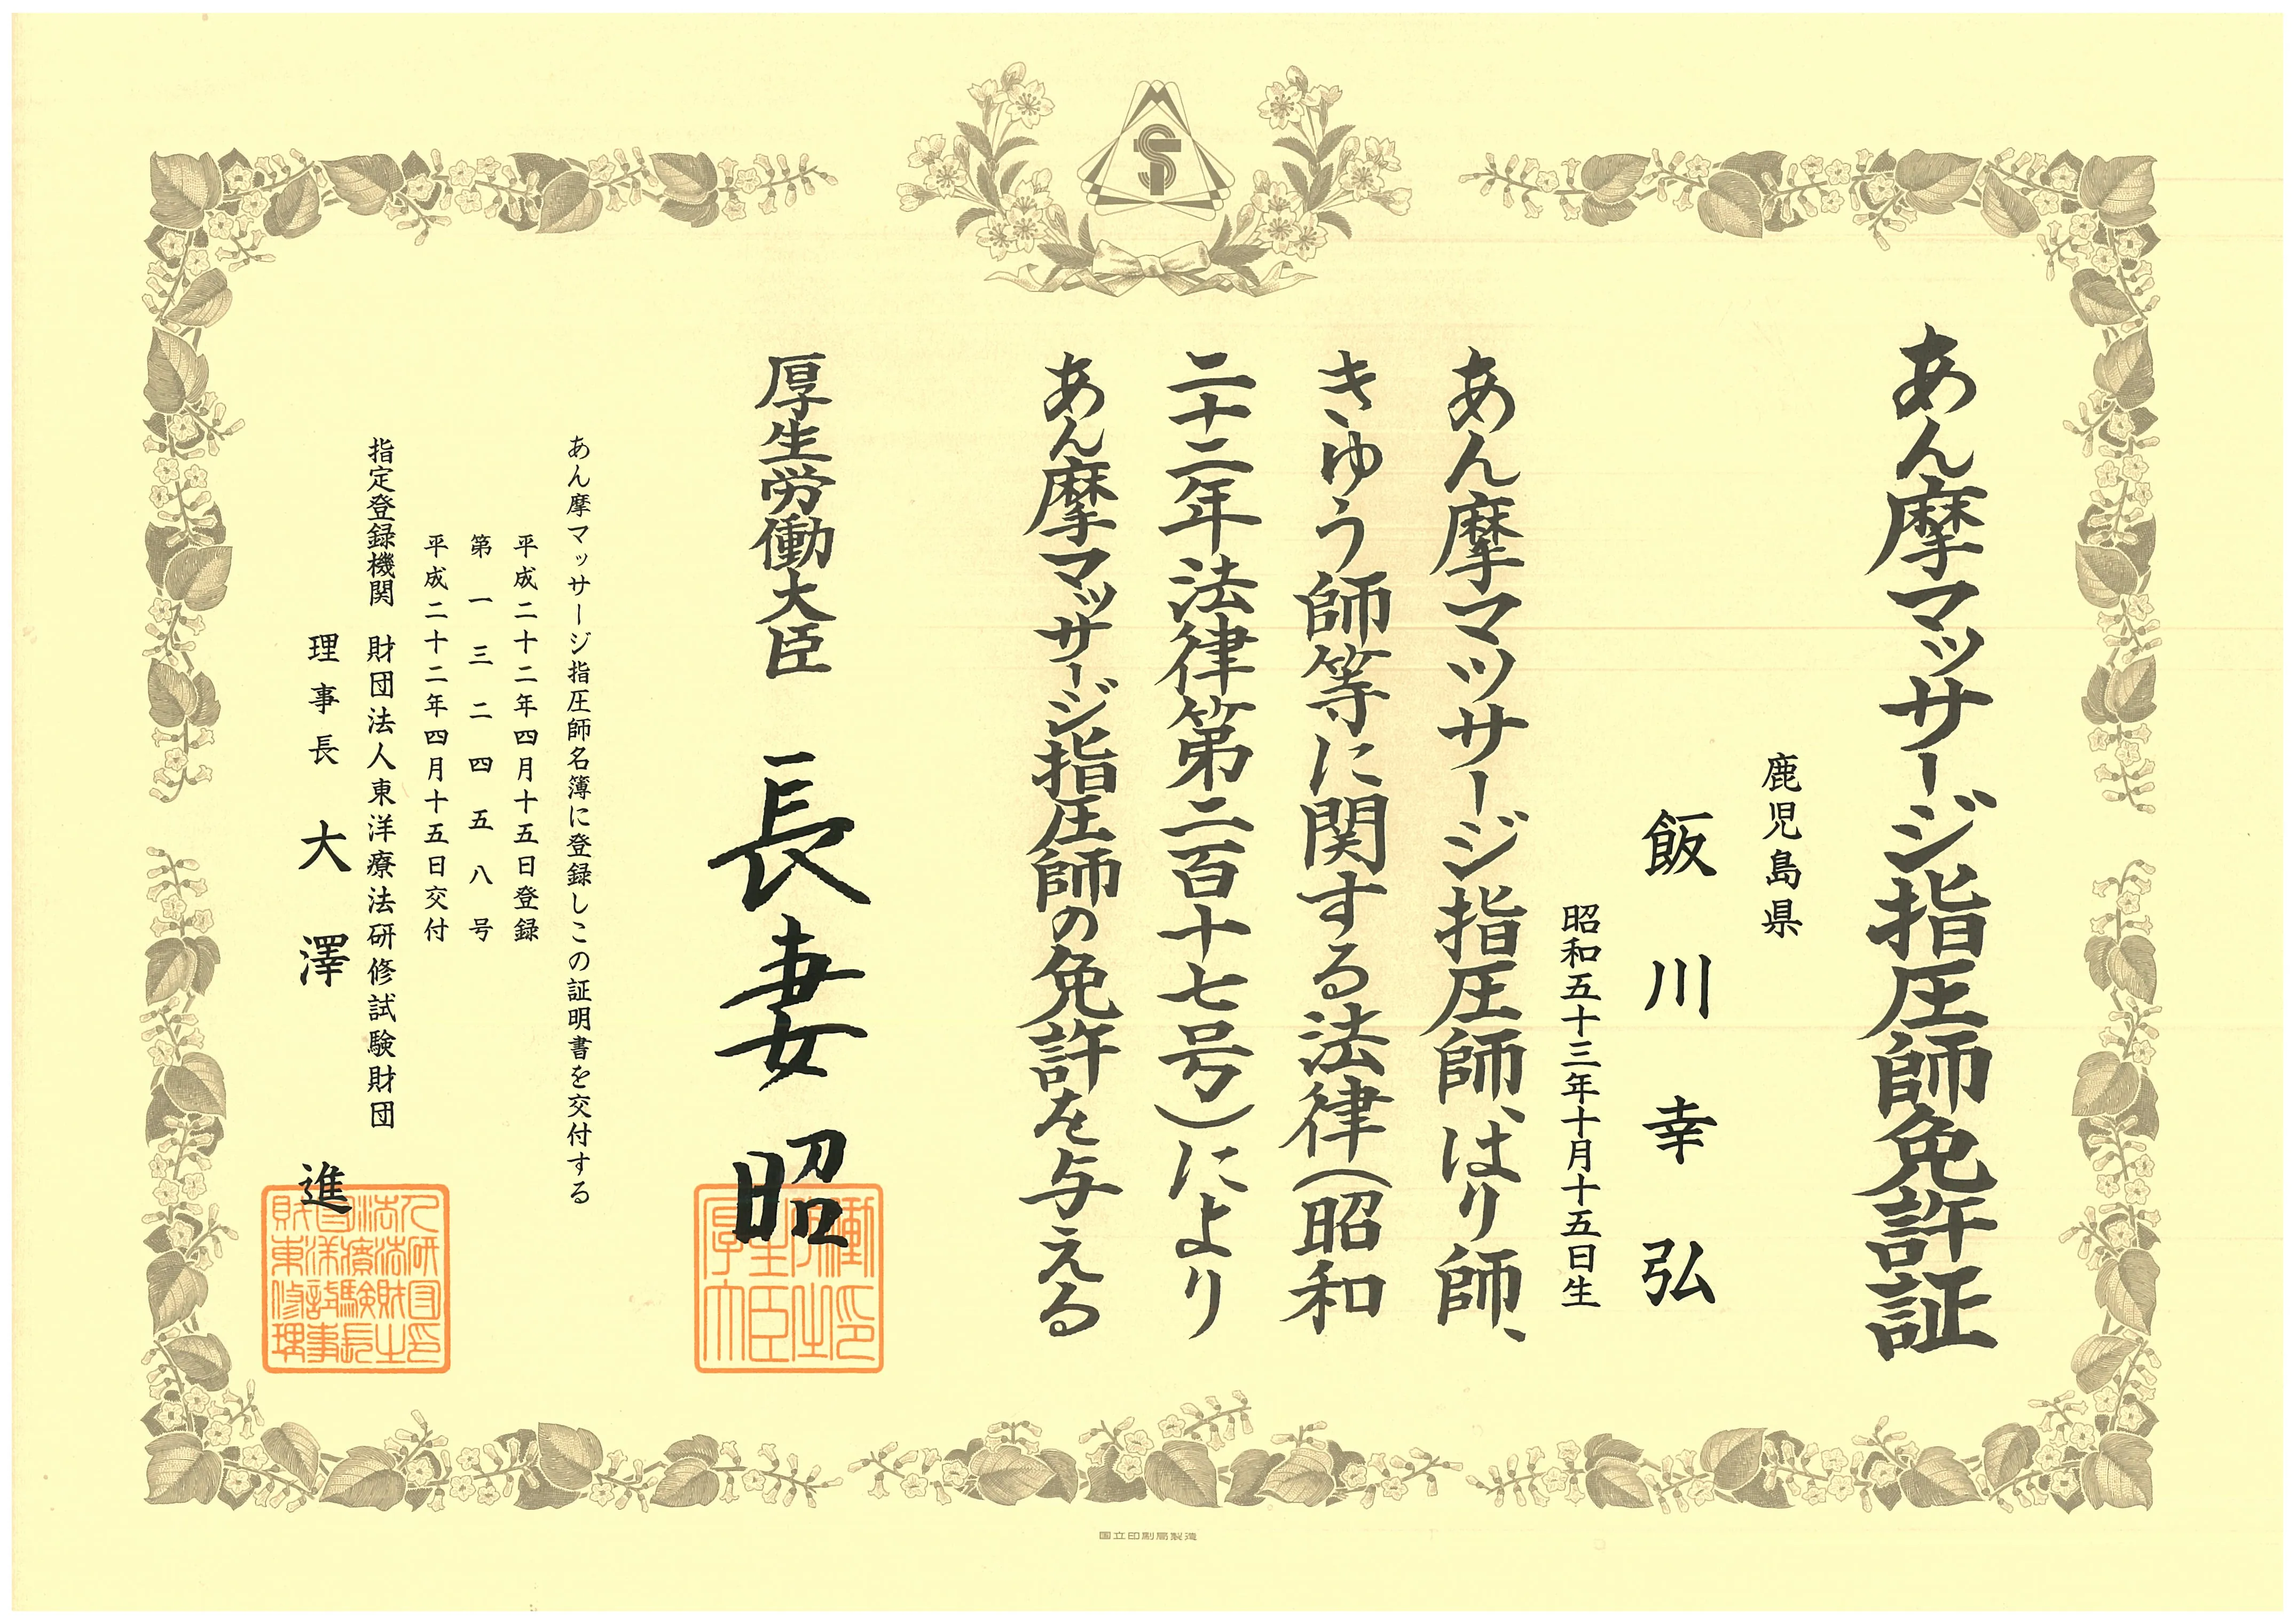 あん摩マッサージ指圧師免許証
鹿児島県
飯川幸弘
昭和五十三年十月十五日生
あん摩マッサージ指圧師、はり師、
きゆう師等に関する法律(昭和
二十二年法律第二百十七号)により
あん摩マッサージ指圧師の免許を与える
厚生労働大臣 長妻昭
あん摩マッサージ指圧師名簿に登録しこの証明書を交付する
平成二十二年四月十五日登録
第一三二四五八号
平成二十二年四月十五日交付
指定登録機関 財団法人東洋療法研修試験財団
理事長 大澤進
国立印刷局製造